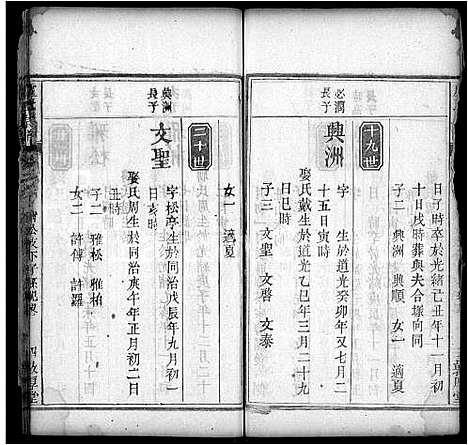 日子時卒於光緒己丑年十一月初
十日戌時葬與夫合塚向同
子二 興洲 興順 女一 適夏
十九世
必潤長子
興洲
字 生於道光癸卯年又七月二
十五日寅時
娶氏戴生於道光乙巳年三月二十九
日巳時
子三 文聖 文啓 文泰
女一 適夏
二十世
興洲長子
文聖
字松亭生於同治戊辰年九月初一
日亥時
娶氏周生於同治庚午年正月初二日
丑時
子二 雅松 雅柏
女二 許傅 許羅
四 敦厚堂